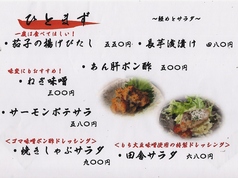 ひとまず
～軽めとサラダ～
一度は食べてほしい！
・茄子の揚げびたし 五五〇円
・長芋漬け 四八〇
・あん肝ポン酢 五五〇円
味変にもおすすめ！
・ねぎ味噌 三〇〇円
・サーモンポテサラ 五八〇円
＜ゴマ味噌ポン酢ドレッシング＞
・焼きしゃぶサラダ 九〇〇円
＜もち大豆味噌使用の特製ドレッシング＞
・田舎サラダ 六八〇円